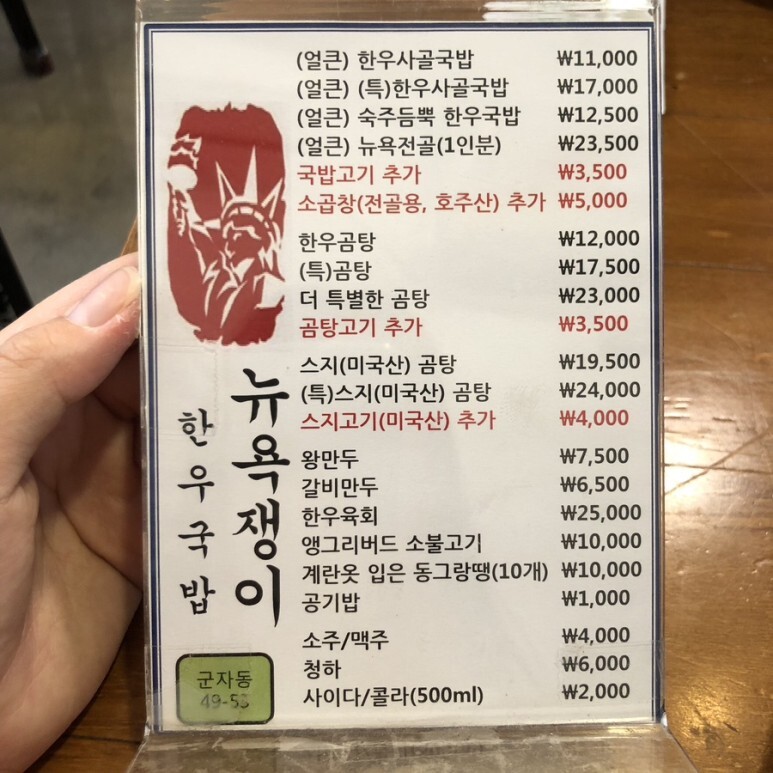 (얼큰) 한우사골국밥 ₩11,000
(얼큰) (특)한우사골국밥 ₩17,000
(얼큰) 숙주듬뿍 한우국밥 ₩12,500
(얼큰) 뉴욕전골(1인분) ₩23,500
국밥고기 추가 ₩3,500
소곱창(전골용, 호주산) 추가 ₩5,000
한우곰탕 ₩12,000
(특)곰탕 ₩17,500
더 특별한 곰탕 ₩23,000
곰탕고기 추가 ₩3,500
스지(미국산) 곰탕 ₩19,500
(특)스지(미국산) 곰탕 ₩24,000
스지고기(미국산) 추가 ₩4,000
왕만두 ₩7,500
갈비만두 ₩6,500
한우육회 ₩25,000
앵그리버드 소불고기 ₩10,000
계란옷 입은 동그랑땡(10개) ₩10,000
공기밥 ₩1,000
소주/맥주 ₩4,000
청하 ₩6,000
사이다/콜라(500ml) ₩2,000
뉴욕쟁이
한우국밥
군자동
49-53